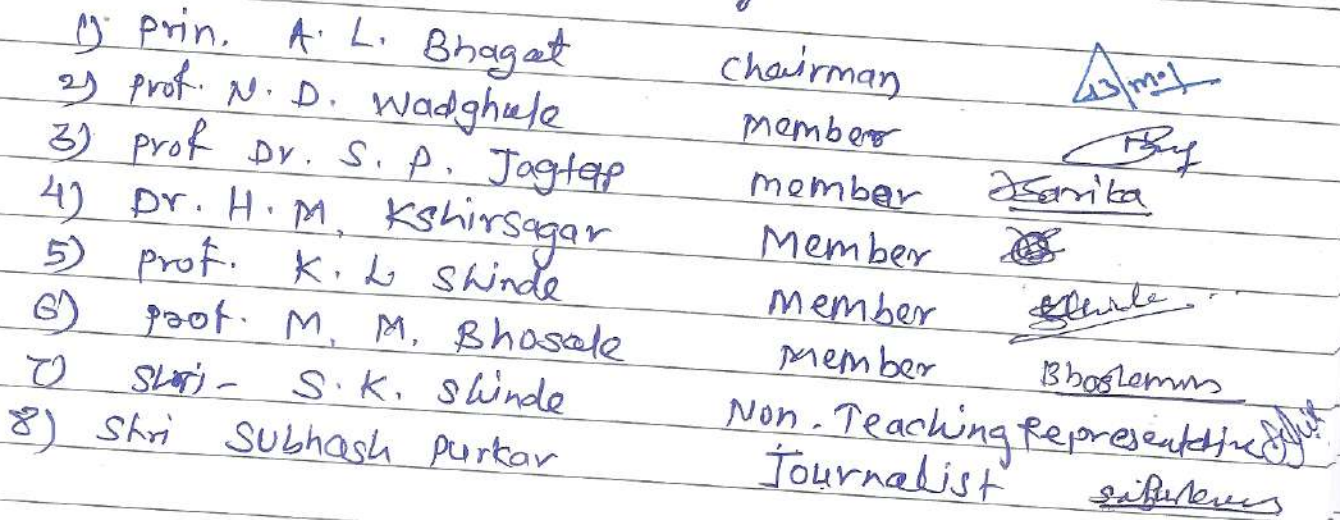 1) Prin. A. L. Bhagat Chairman
2) Prof. N. D. Wadghule member
3) Prof Dr. S. P. Jagtap member Sarika
4) Dr. H. M. Kshirsagar Member
5) Prof. K. L Shinde Member
6) Prof. M. M. Bhosale Member Bhoslemm
7) Shri - S. K. Shinde Non. Teaching Representative
8) Shri Subhash Purkar Journalist